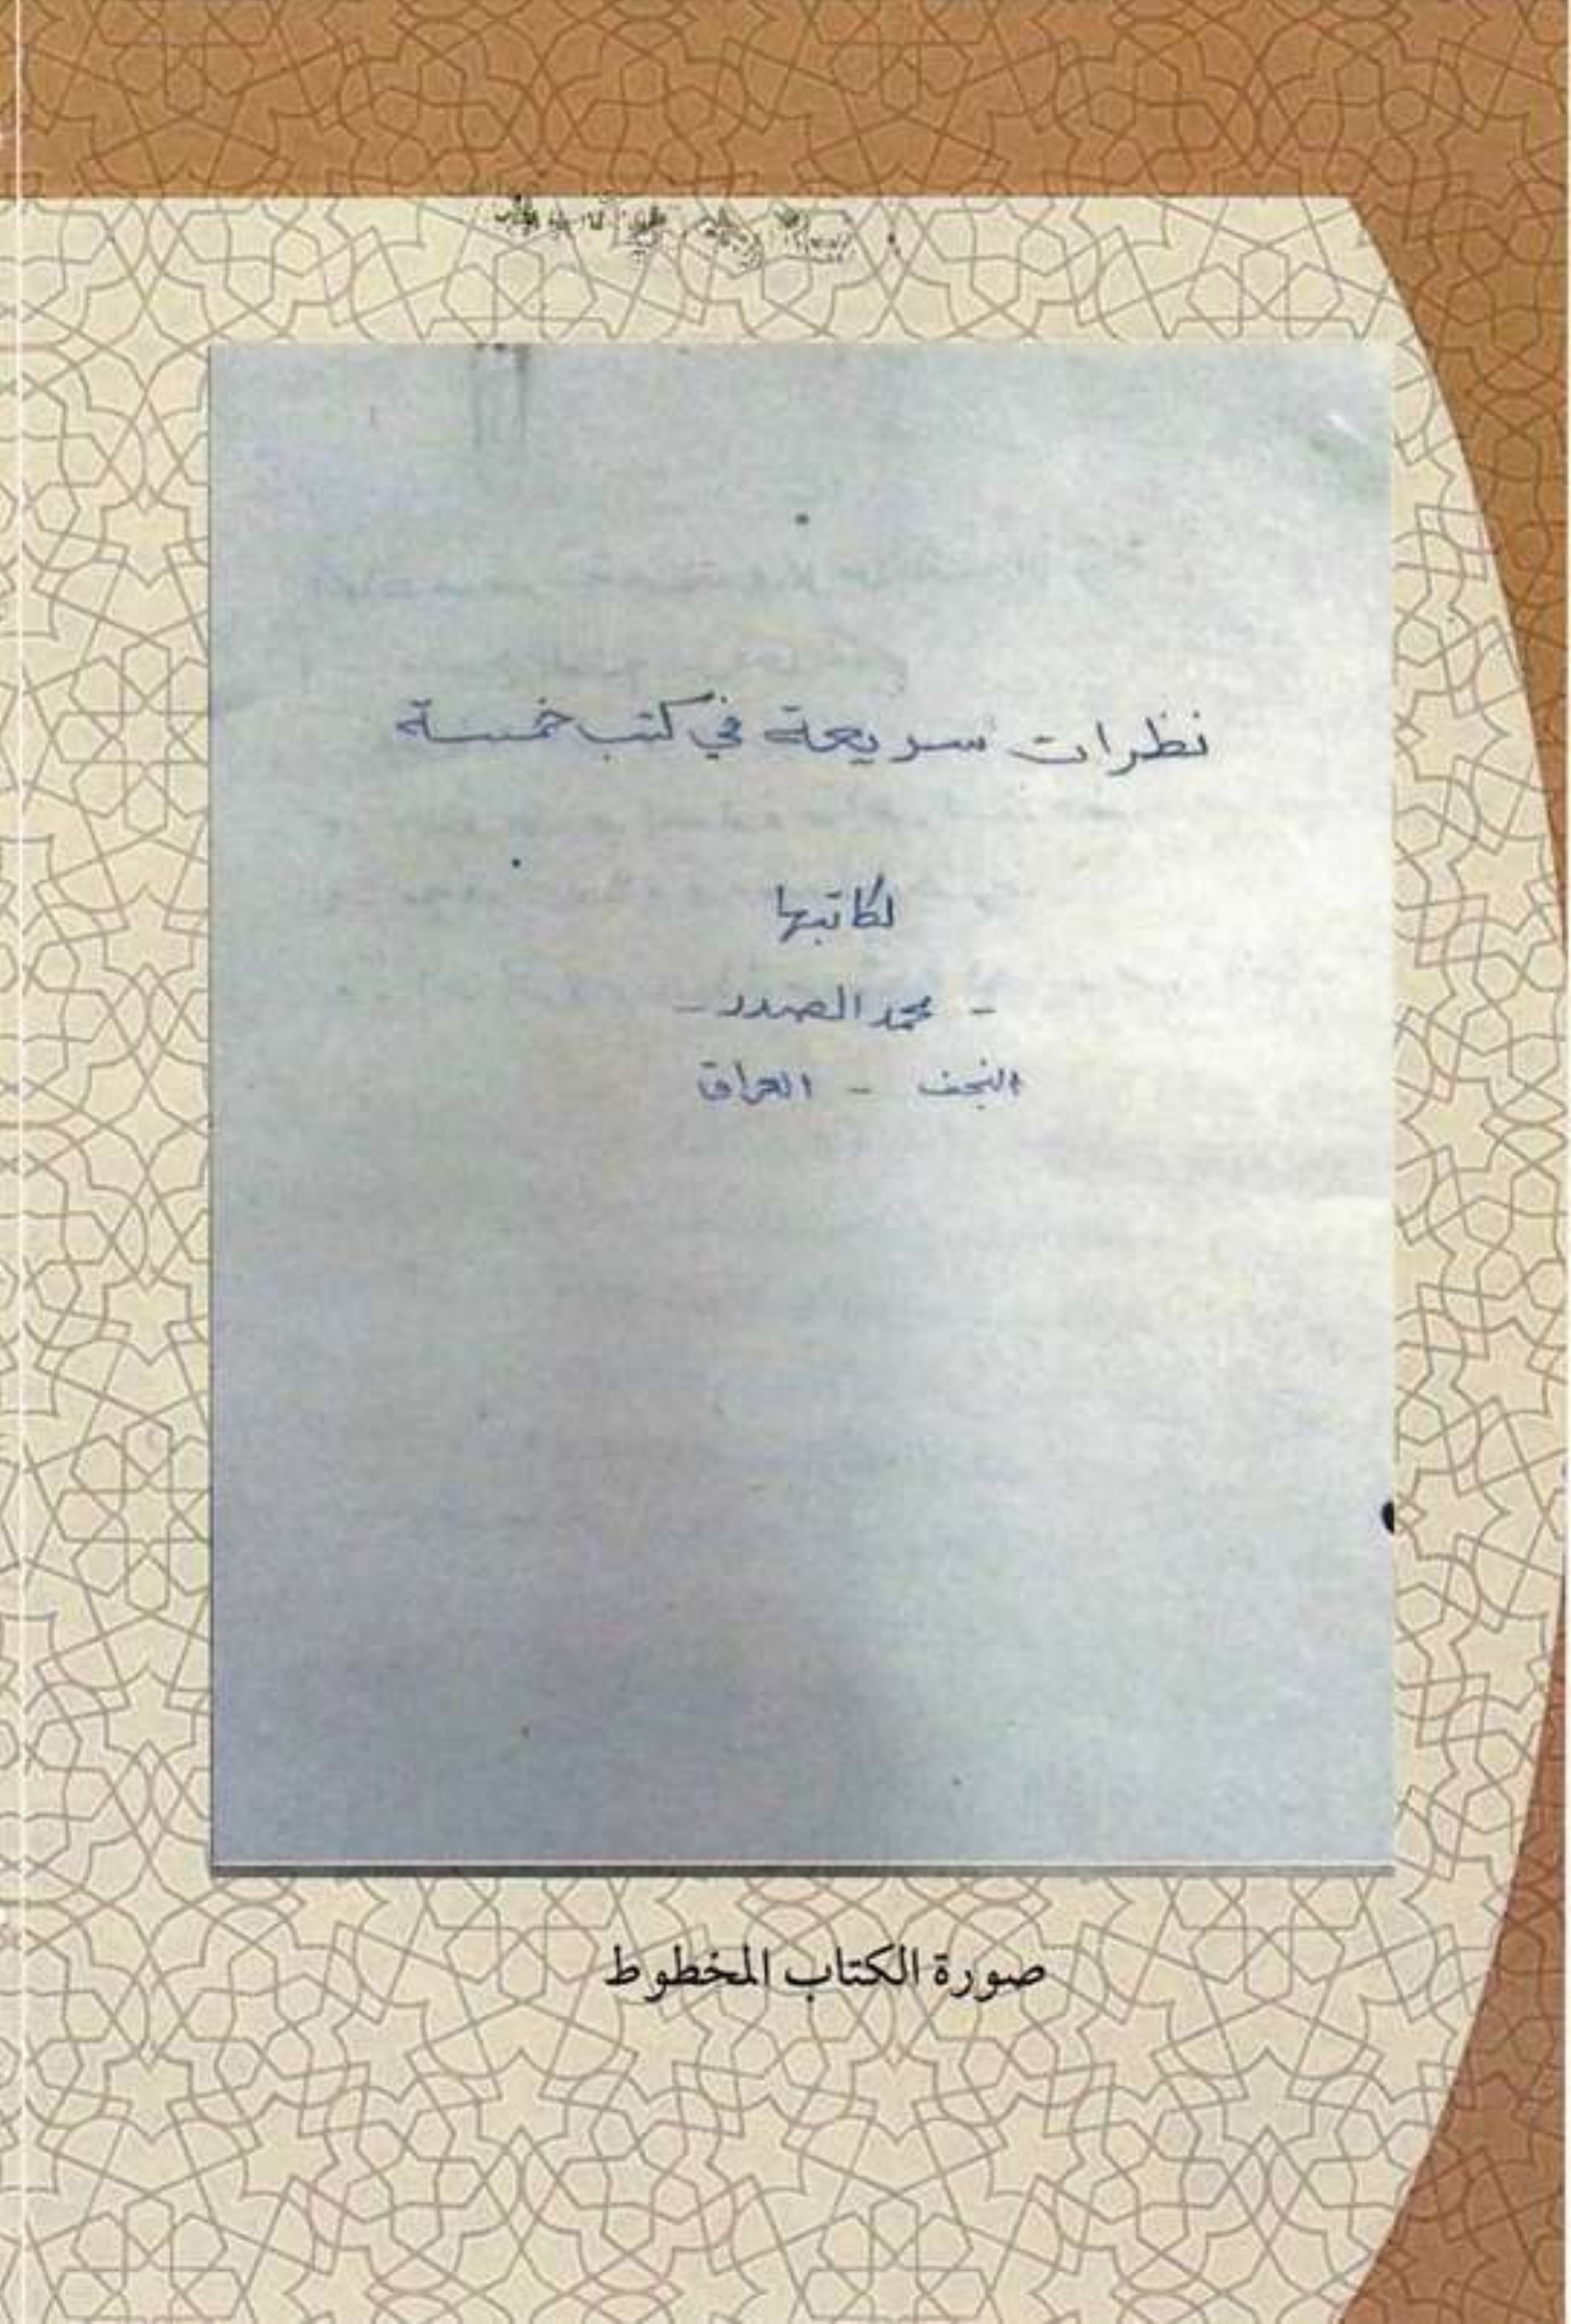 نظرات سريعة في كتب خمسة
لكاتبها
- محمد الصدر -
النجف - العراق
صورة الكتاب المخطوط